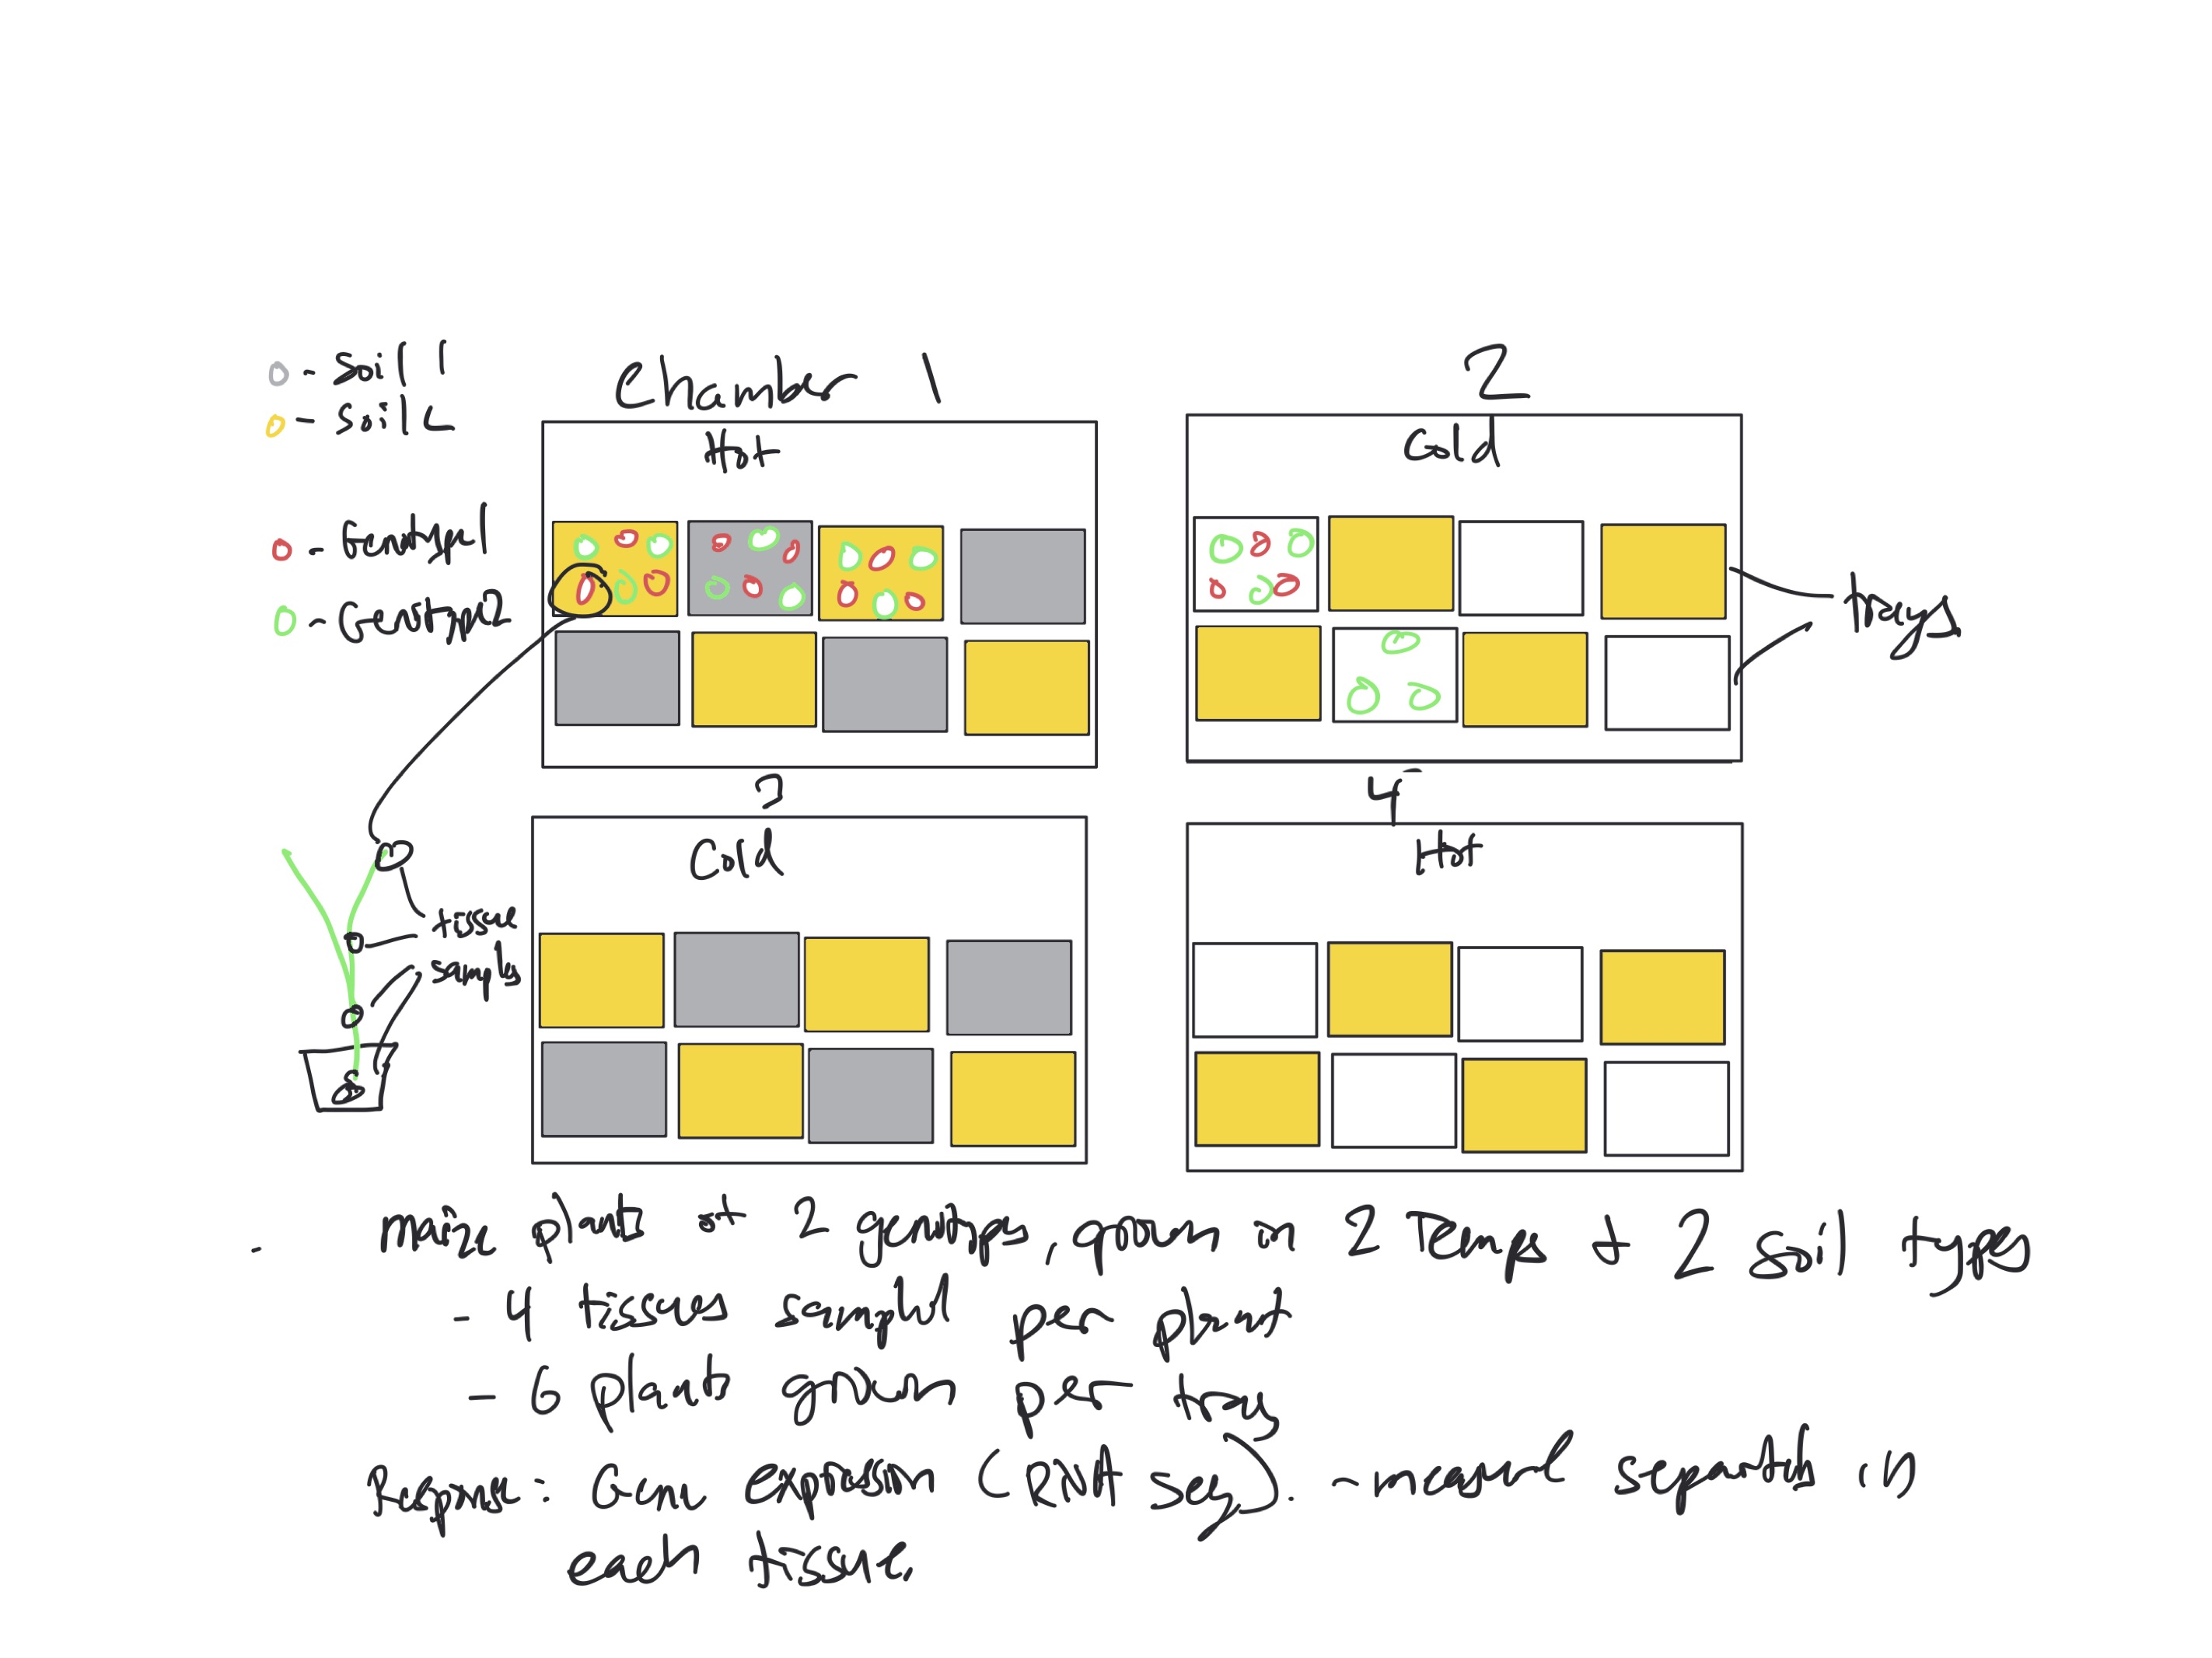 - Soil 1
- Soil 2
- Genotype 1
- Genotype 2
Chamber 1
Hot
2
Cold
trays
3
Cold
4
Hot
tissue
samples
- maize plants of 2 genotypes, grown in 2 Temps + 2 soil types
- 4 tissues sampled per plant
- 6 plants grown per tray
Response: Gene expression (RNA seq). - measured separately in
each tissue.